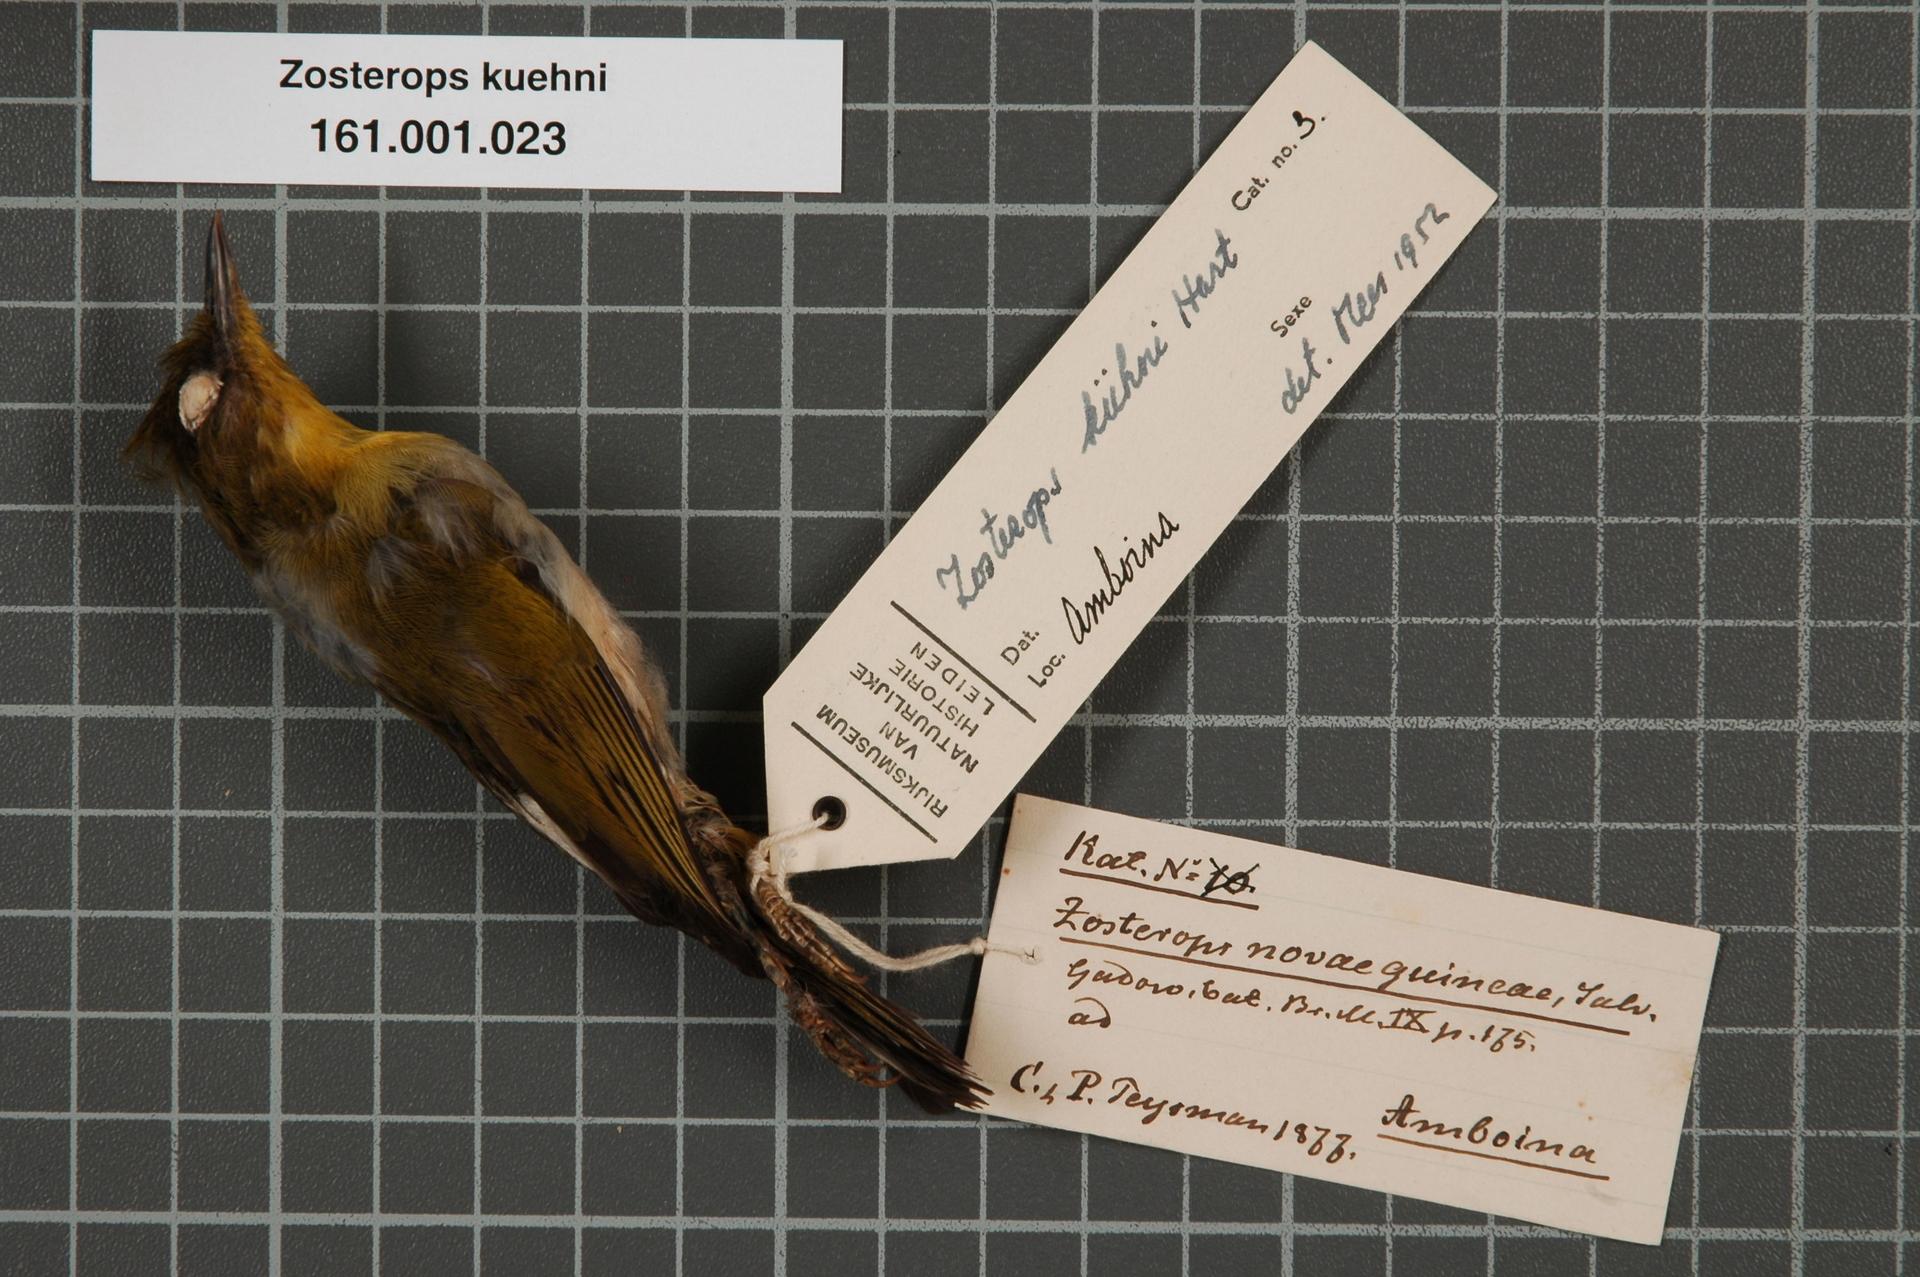 Zosterops kuehni
161.001.023
RIJKSMUSEUM
VAN
NATUURLIJKE
HISTORIE
LEIDEN
Zosterops kühni Hart
Cat. no. 3.
Dat.
Sexe
Loc. Amboina
det. Mees 1952
Kat. No 10.
Zosterops novaeguineae, Salv.
Gadow. Cat. Br. M. IX p. 175.
ad
C., P. Teysman 1877.
Amboina